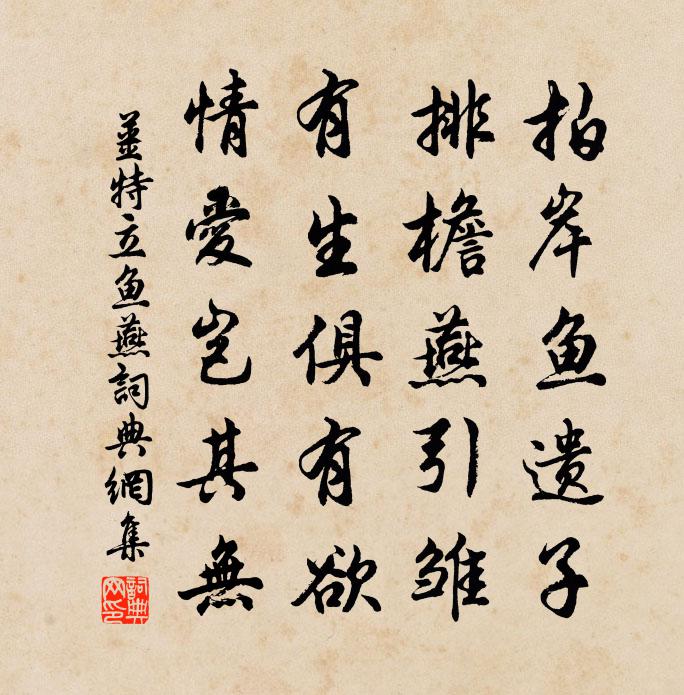 拍岸鱼遗子
排檐燕引雏
有生俱有欲
情爱岂其無
姜特立鱼燕詞典網集
詞典网印